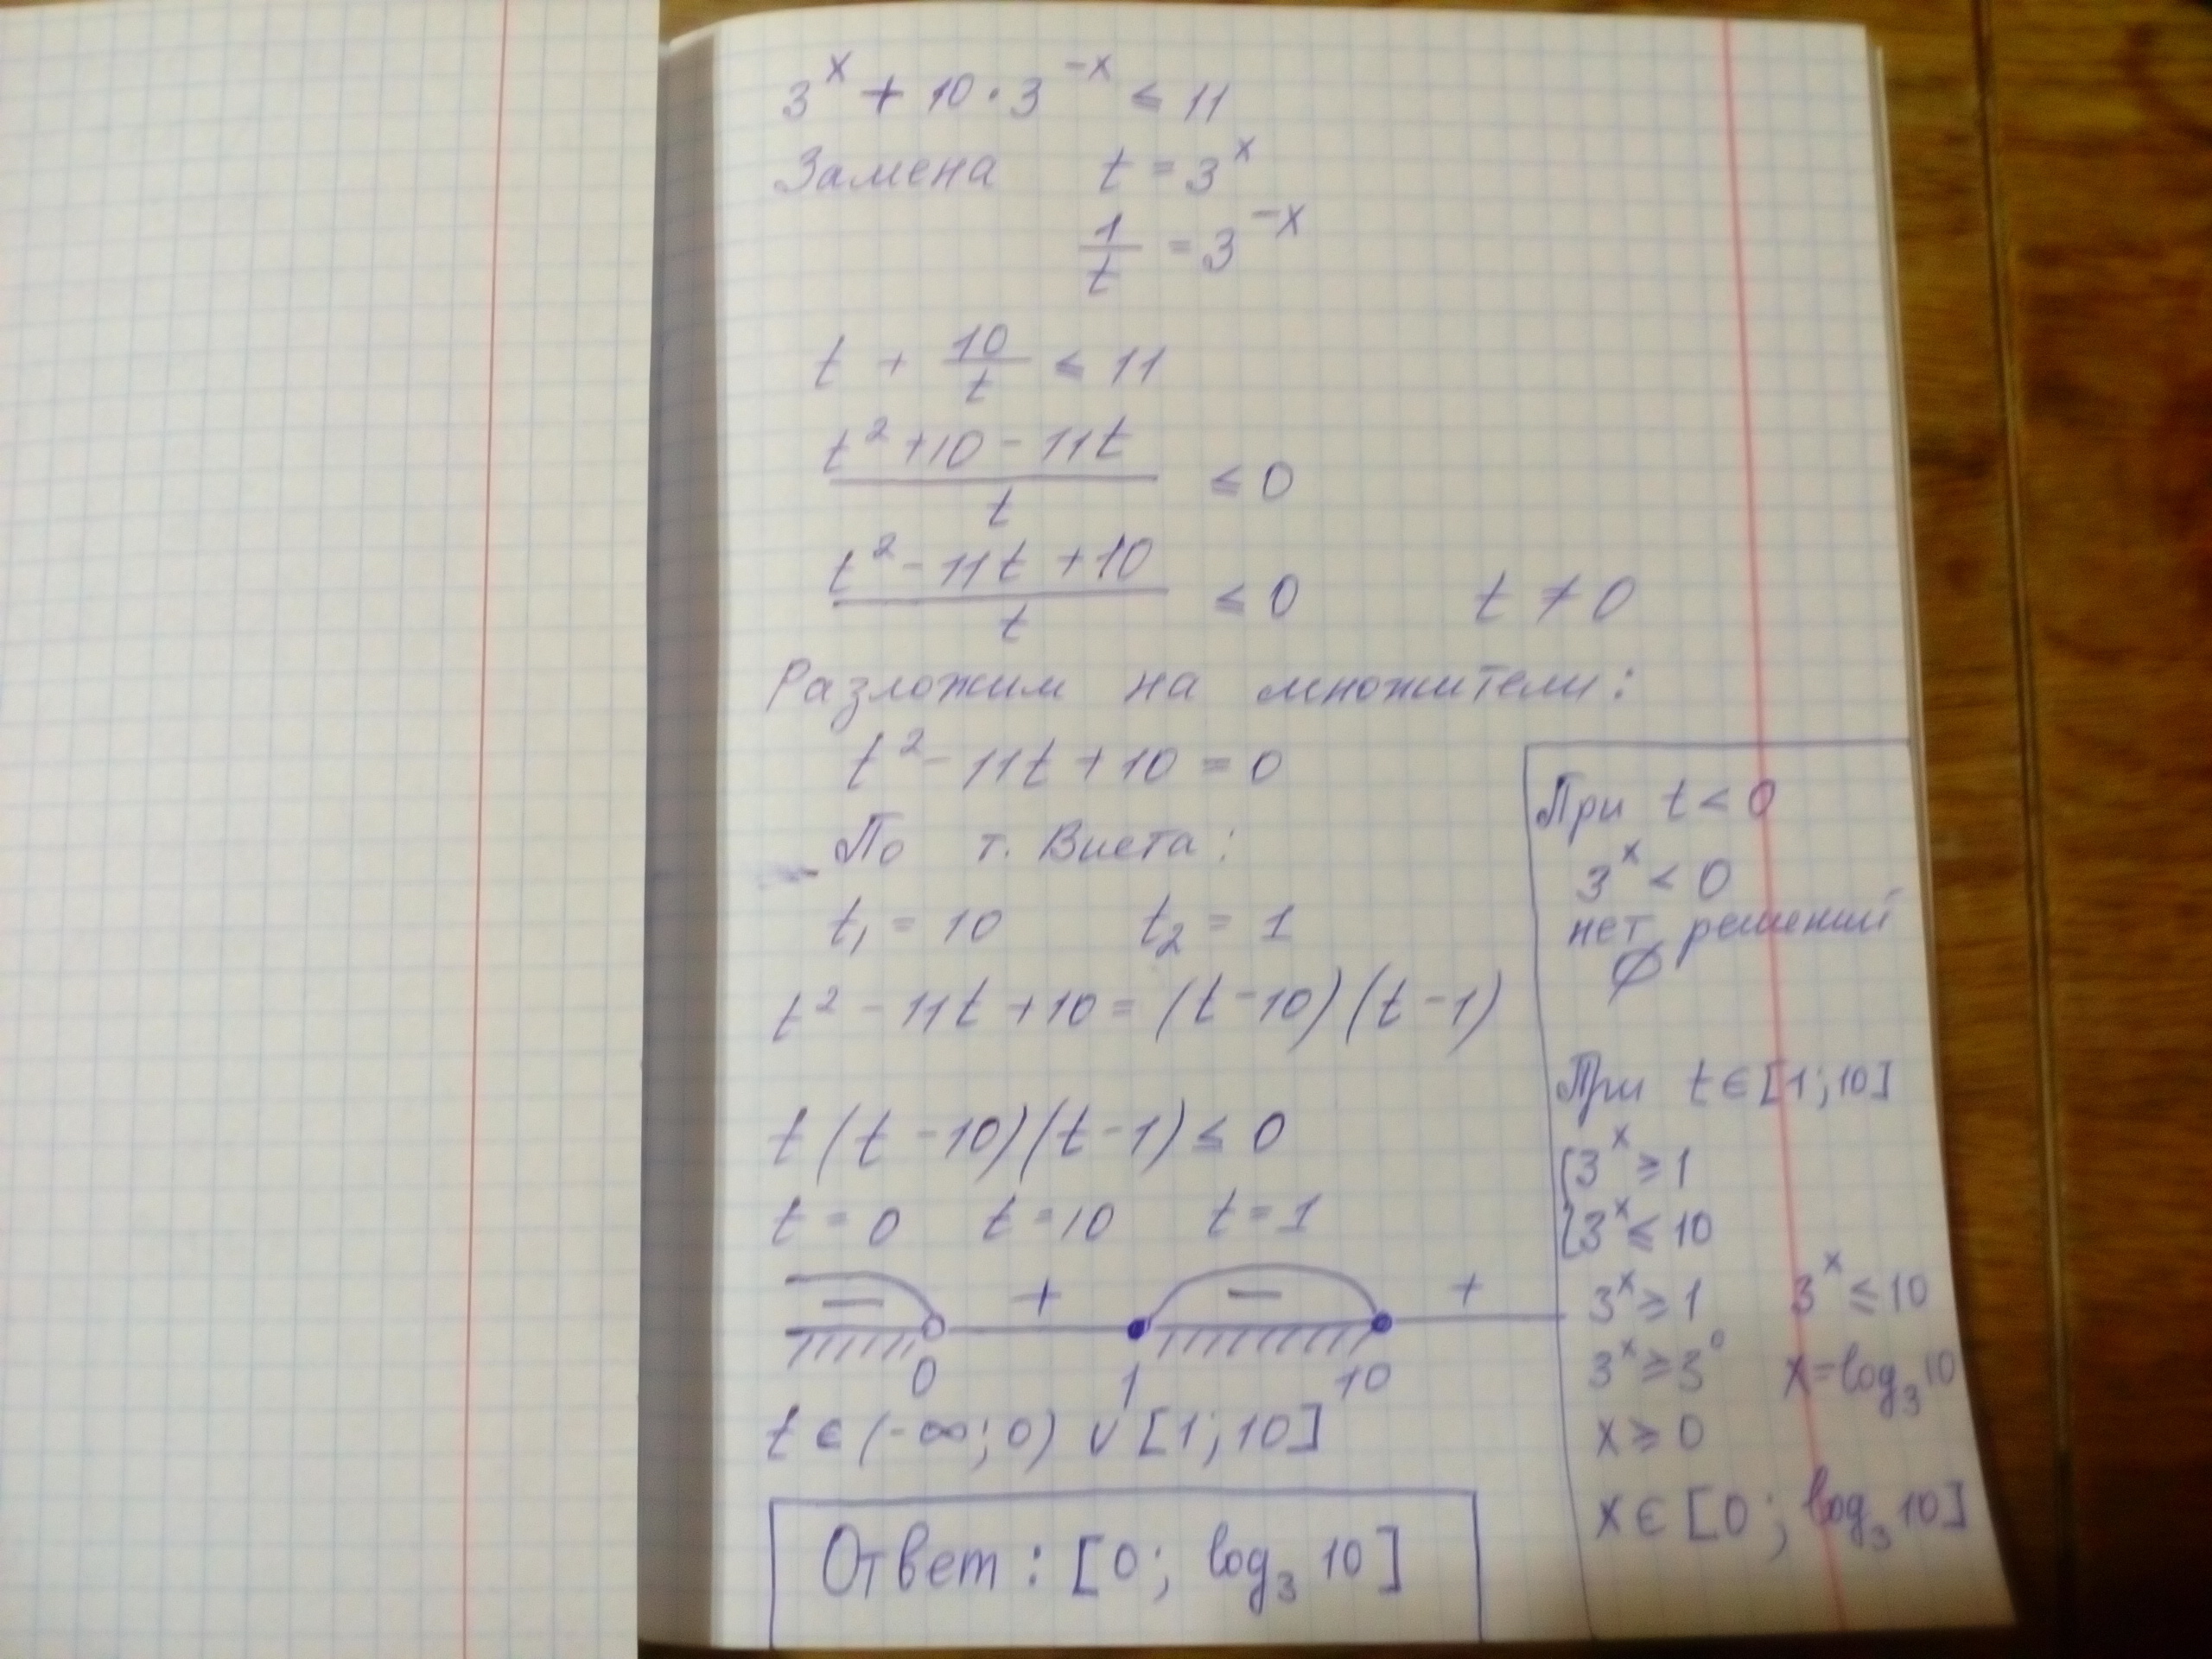 3^x + 10 · 3^-x ≤ 11
Замена t = 3^x
1/t = 3^-x
t + 10/t ≤ 11
(t² + 10 - 11t)/t ≤ 0
(t² - 11t + 10)/t ≤ 0 t ≠ 0
Разложим на множители:
t² - 11t + 10 = 0
По т. Виета:
t₁ = 10 t₂ = 1
t² - 11t + 10 = (t - 10)(t - 1)
t(t - 10)(t - 1) ≤ 0
t = 0 t = 10 t = 1
− + − +
0 1 10
t ∈ (-∞; 0) ∪ [1; 10]
При t < 0
3^x < 0
нет решений
∅
При t ∈ [1; 10]
{3^x ≥ 1
{3^x ≤ 10
3^x ≥ 1 3^x ≤ 10
3^x ≥ 3^0 x = log₃ 10
x ≥ 0
x ∈ [0; log₃ 10]
Ответ: [0; log₃ 10]